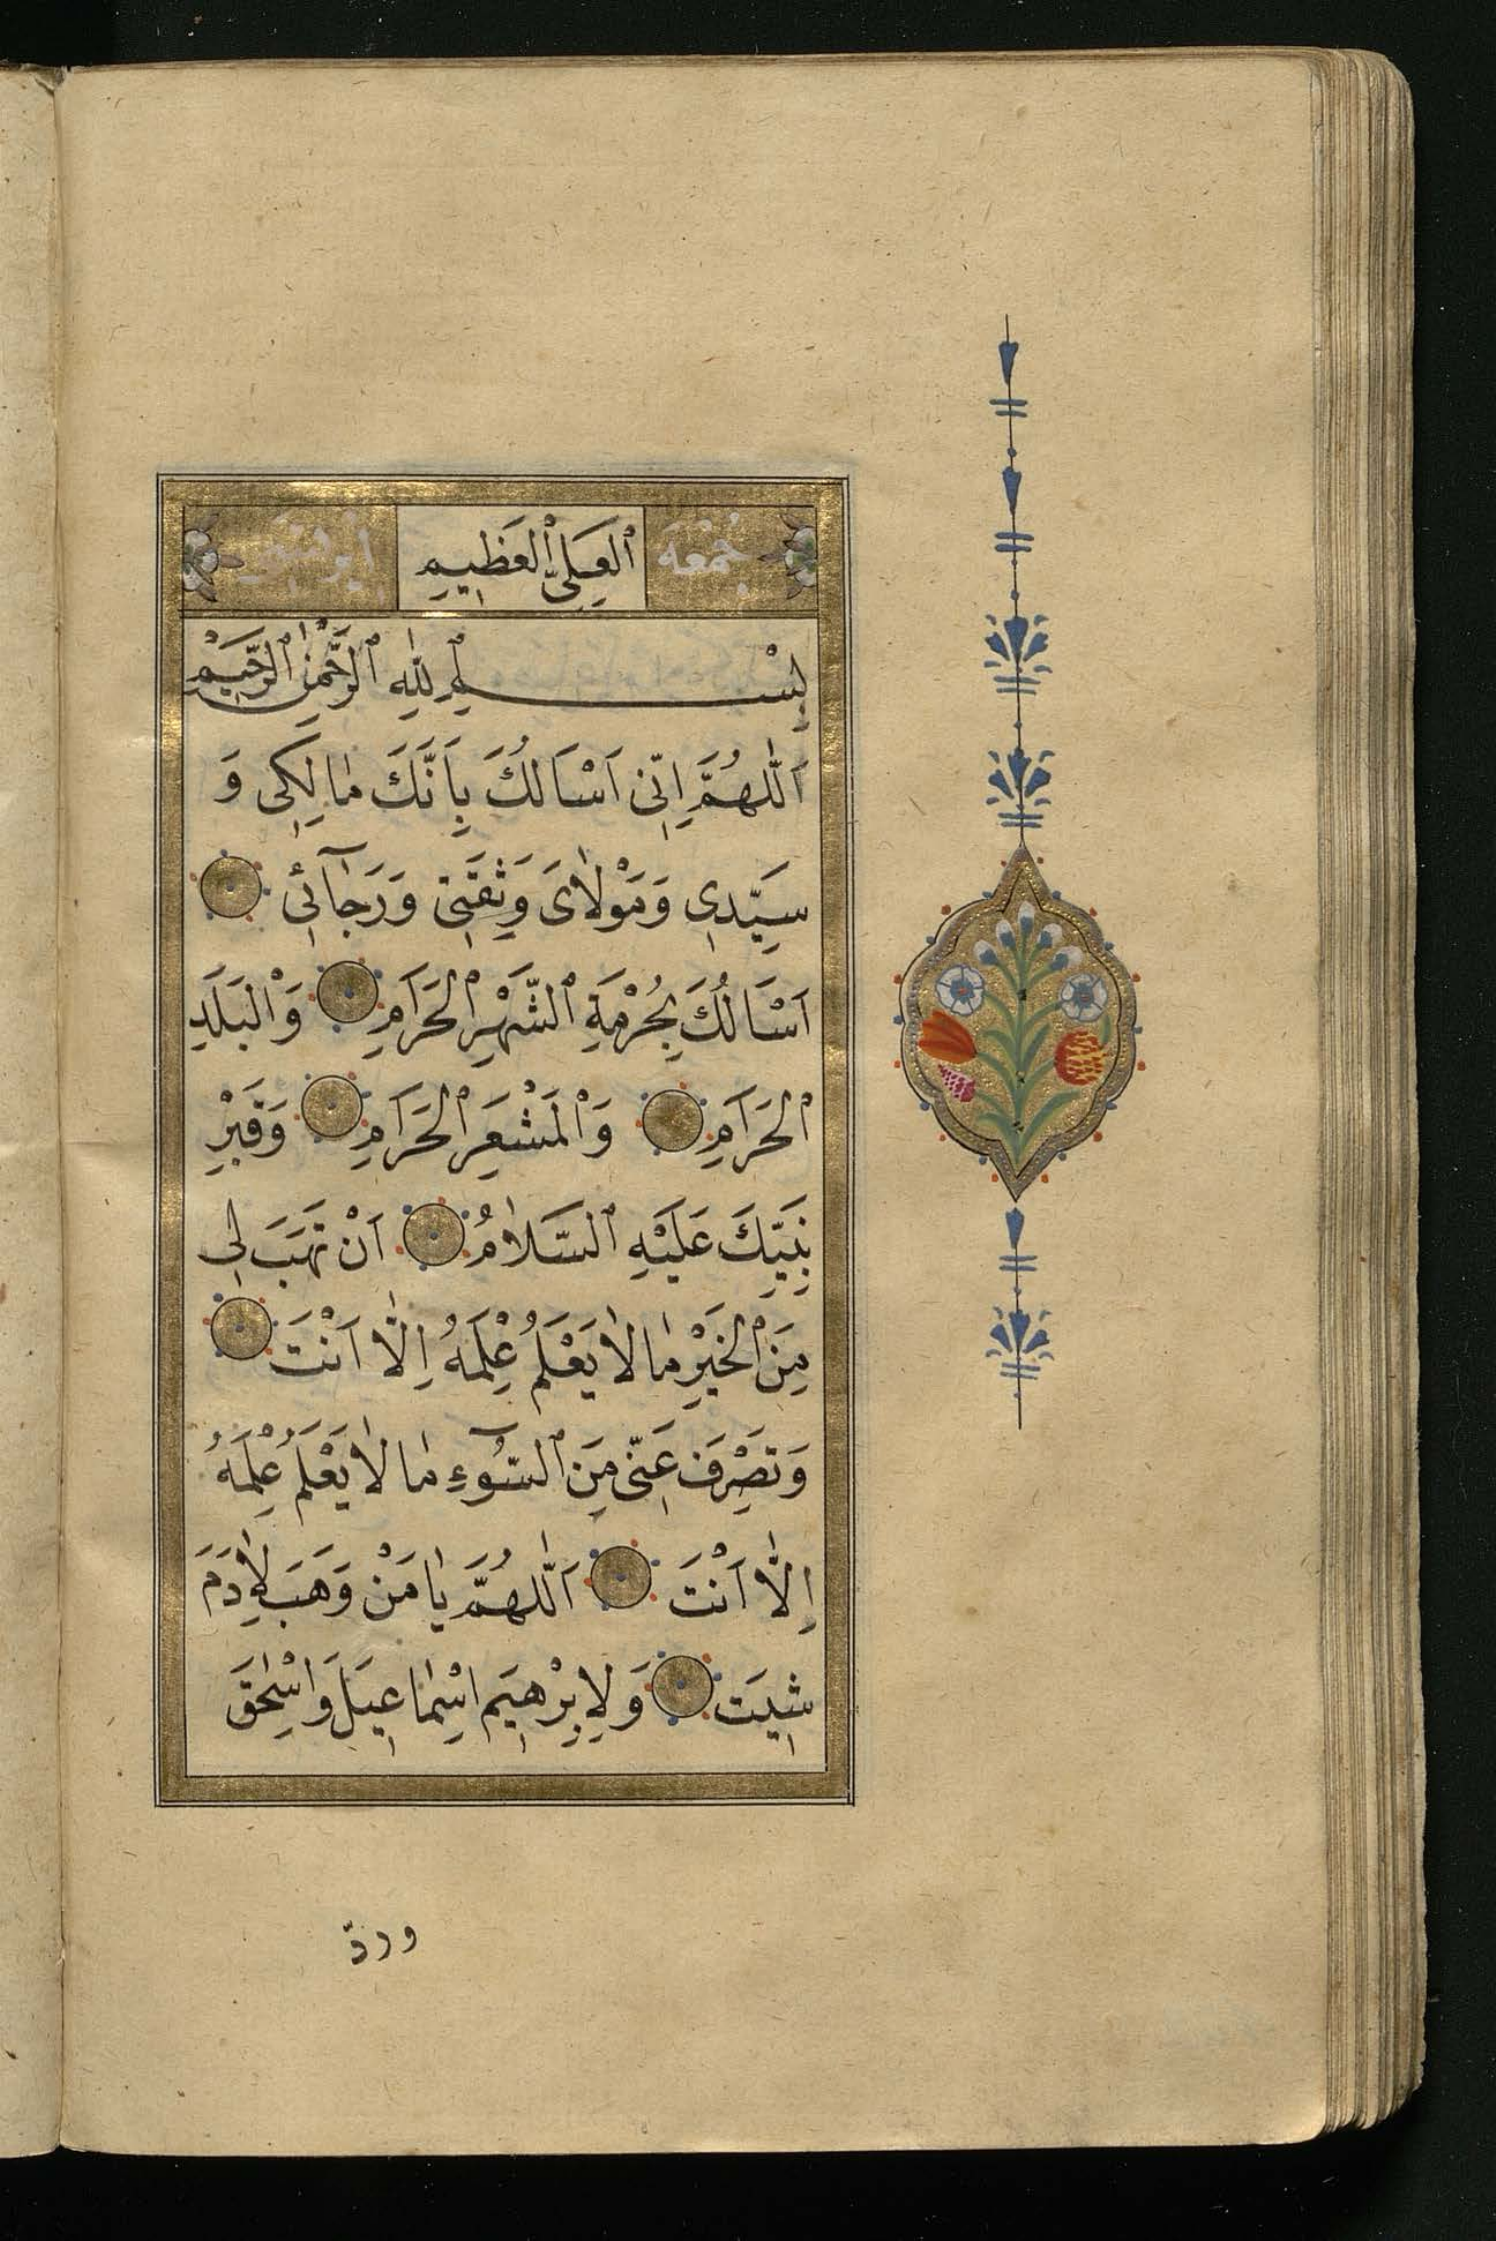 جُمْعَه ٱلعَلِىِّ ٱلْعَظِيمِ
بِسْــــمِ ٱللّٰهِ ٱلرَّحْمٰنِ ٱلرَّحِيمِ
اَللّٰهُمَّ اِنّى اَسْاَلُكَ بِاَنَّكَ مٰالِكِى وَ
سَيِّدِى وَمَوْلاٰىَ وَثِقَتِى وَرَجٰآئِى
اَسْاَلُكَ بِحُرْمَةِ ٱلشَّهْرِ ٱلْحَرَامِ وَٱلْبَلَدِ
ٱلْحَرَامِ وَٱلْمَشْعَرِ ٱلْحَرَامِ وَقَبْرِ
نَبِيِّكَ عَلَيْهِ ٱلسَّلاٰمُ اَنْ تَهَبَ لِى
مِنَ ٱلْخَيْرِ مٰا لاٰ يَعْلَمُ عِلْمَهُ اِلّٰا اَنْتَ
وَتَصْرِفَ عَنِّى مِنَ ٱلسُّوٓءِ مٰا لاٰ يَعْلَمُ عِلْمَهُ
اِلّٰا اَنْتَ اَللّٰهُمَّ يٰا مَنْ وَهَبَ لِاٰدَمَ
شِيتَ وَلِاِبْرٰهِيمَ اِسْمٰاعِيلَ وَاِسْحٰقَ
وردّ